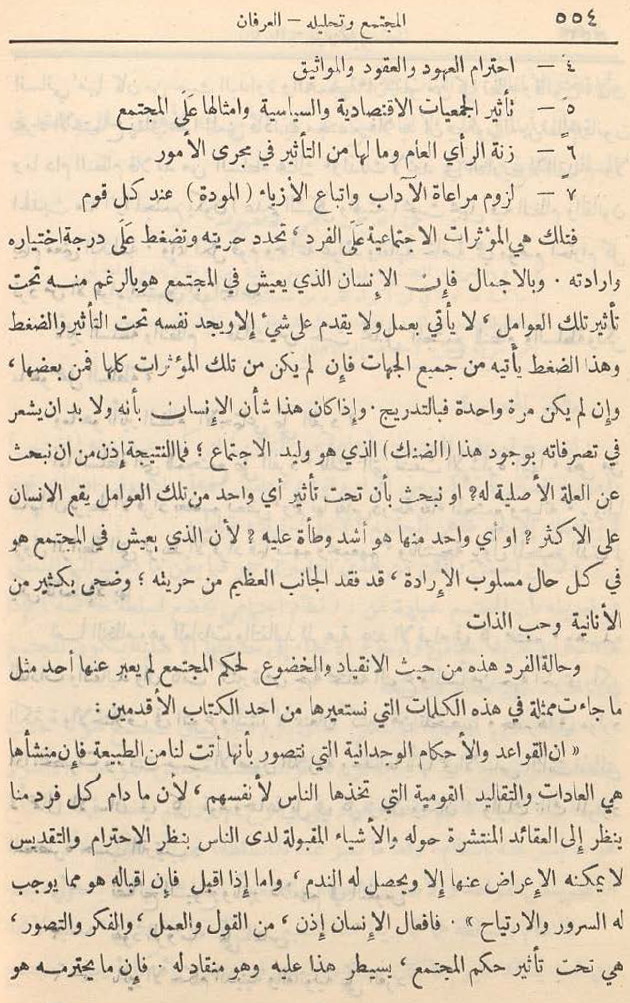 ٥٥٤ المجتمع وتحليله – العرفان
٤ – احترام العهود والعقود والمواثيق
٥ – تأثير الجمعيات الاقتصادية والسياسية وامثالها علَى المجتمع
٦ – زنة الرأي العام وما لها من التأثير في مجرى الأمور
٧ – لزوم مراعاة الآداب واتباع الأزياء (المودة) عند كل قوم
فتلك هي المؤثرات الاجتماعية علَى الفرد ، تحدد حريته وتضغط علَى درجة اختباره
وارادته . وبالاجمال فإن الإنسان الذي يعيش في المجتمع هو بالرغم منه تحت
تأثير تلك العوامل ، لا يأتي بعمل ولا يقدم على شيء إلا ويجد نفسه تحت التأثير والضغط
وهذا الضغط يأتيه من جميع الجهات فإن لم يكن من تلك المؤثرات كلها فمن بعضها ،
وإن لم يكن مرة واحدة فبالتدريج . وإذا كان هذا شأن الإنسان بأنه ولا بد ان يشعر
في تصرفاته بوجود هذا (الضنك) الذي هو وليد الاجتماع ؛ فما النتيجة إذن من ان نبحث
عن العلة الأصلية له؟ او نبحث بأن تحت تأثير أي واحد من تلك العوامل يقع الانسان
على الاكثر ؟ او أي واحد منها هو أشد وطأة عليه ؟ لأن الذي يعيش في المجتمع هو
في كل حال مسلوب الإرادة ، قد فقد الجانب العظيم من حريته ؛ وضحى بكثير من
الأنانية وحب الذات
وحالة الفرد هذه من حيث الانقياد والخضوع لحكم المجتمع لم يعبر عنها أحد مثل
ما جاءت ممثلة في هذه الكلمات التي نستعيرها من احد الكتاب الأقدمين :
« ان القواعد والأحكام الوجدانية التي نتصور بأنها أتت لنا من الطبيعة فإن منشأها
هي العادات والتقاليد القومية التي تخذها الناس لأنفسهم ، لأن ما دام كل فرد منا
ينظر إلى العقائد المنتشرة حوله والأشياء المقبولة لدى الناس بنظر الاحترام والتقديس
لا يمكنه الإعراض عنها إلا ويحصل له الندم ، واما إذا اقبل فإن اقباله هو مما يوجب
له السرور والارتياح » . فافعال الإنسان إذن ، من القول والعمل ، والفكر والتصور ،
هي تحت تأثير حكم المجتمع ، يسيطر هذا عليه وهو منقاد له . فإن ما يحترمه هو